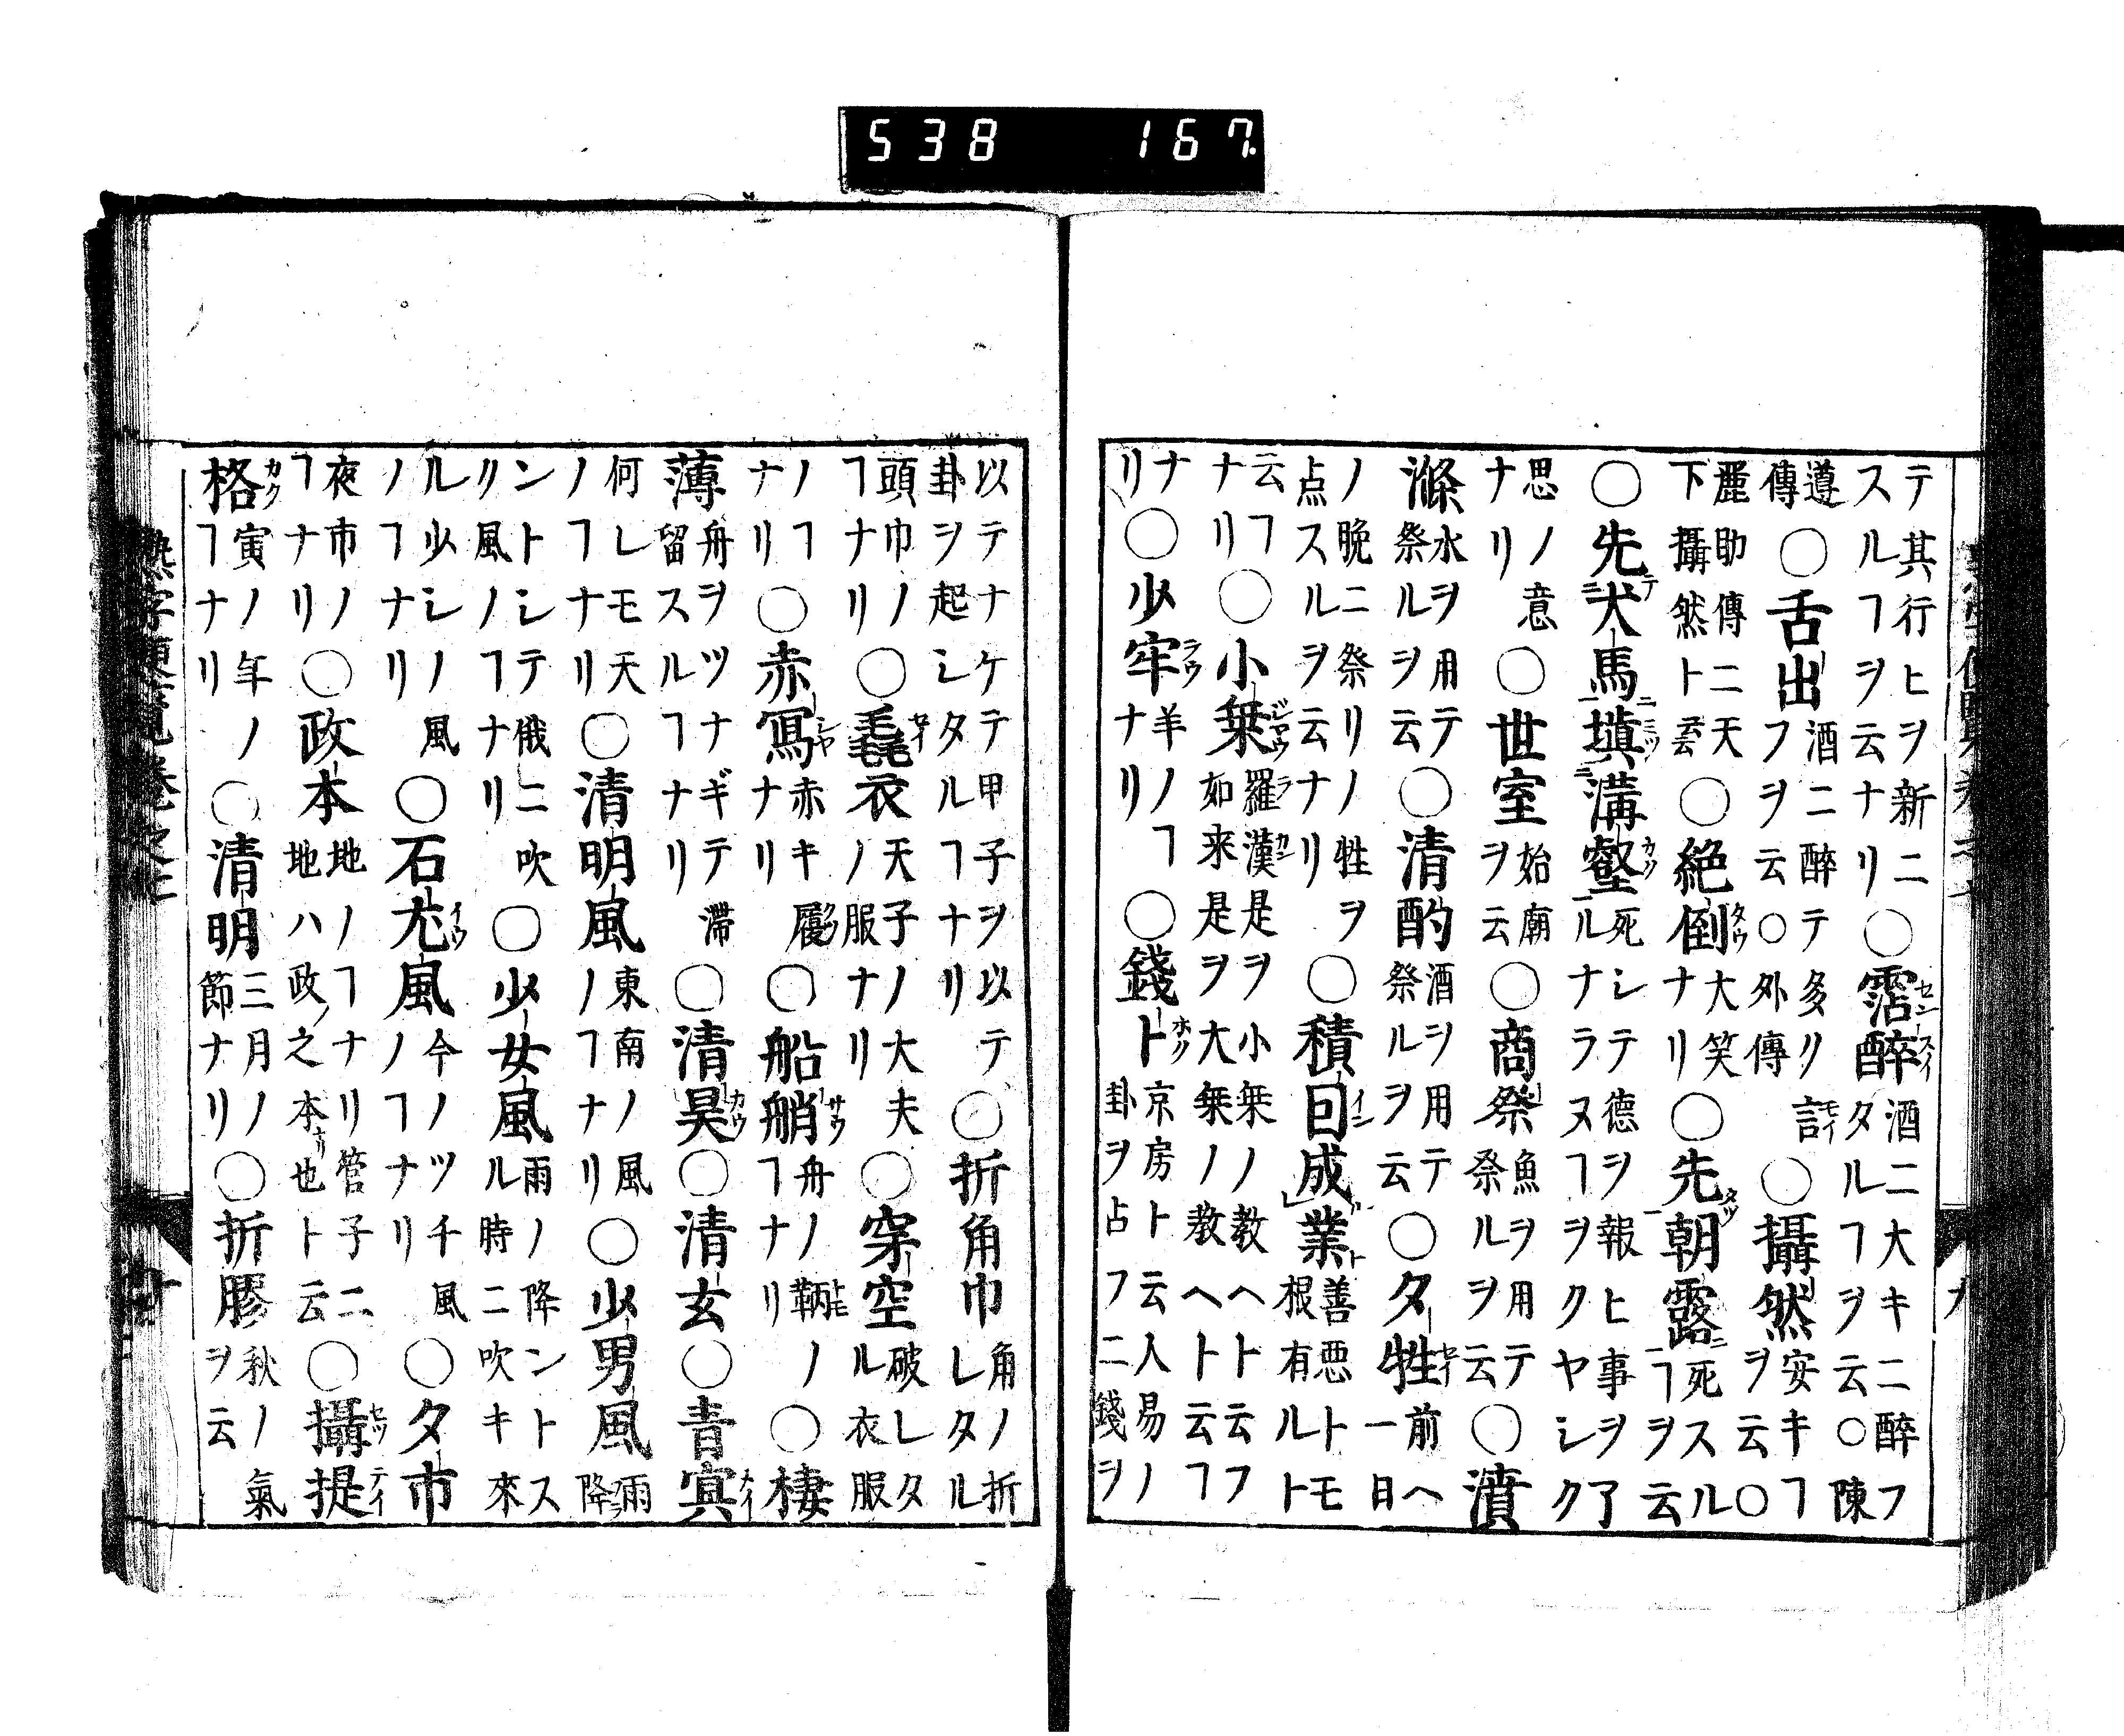 538 167
テ其行ヒヲ新ニスルヿヲ云ナリ○霑醉酒ニ大キニ醉フタルヿヲ云○陳
遵傳○舌出酒ニ醉テ多リ言フヲ云○外傳○攝然安キヿヲ云○
麗助傳ニ天下攝然ト云○絶倒大笑ナリ○先朝露死スルヿヲ云
○先犬馬塡溝壑死シテ德ヲ報ヒ事ヲ了ルナラヌヿヲクヤシク
思ノ意ナリ○世室始廟ヲ云○商祭魚ヲ用テ祭ルヲ云○瀆
滌水ヲ用テ祭ルヲ云○清酌酒ヲ用テ祭ルヲ云○夕牲前ヘ一日
ノ晚ニ祭リノ牲ヲ点スルヲ云ナリ○積因成業善惡トモ根有ルト
云フヿナリ○小乗羅漢是ヲ小乗ノ教ヘト云フ如来是ヲ大乗ノ教ヘト云ヿ
ナリ○少牢羊ノヿナリ○錢卜京房卜云人易ノ卦ヲ占フニ錢ヲ
以テナケテ甲子ヲ以テ卦ヲ起シタルヿナリ○折角巾角ノ折レタル
頭巾ノヿナリ○毳衣天子ノ大夫ノ服ナリ○穿空破レタル衣服
ノヿナリ○赤舃赤キ履ナリ○船艄舟ノ鞆ノヿナリ○棲
薄舟ヲツナギテ滯留スルヿナリ○清昊○清玄○青冥
何レモ天ノヿナリ○清明風東南ノ風ノヿナリ○少男風雨降
ントシテ俄ニ吹リ風ノヿナリ○少女風雨ノ降ントスル時ニ吹キ來
ル少シノ風ノヿナリ○石尤風今ノツチ風ノヿナリ○夕市
夜市ノヿナリ○政本地ノヿナリ管子ニ地ハ政之本也ト云○攝提
格寅ノ年ノヿナリ○清明三月ノ節ナリ○折膠秋ノ氣ヲ云